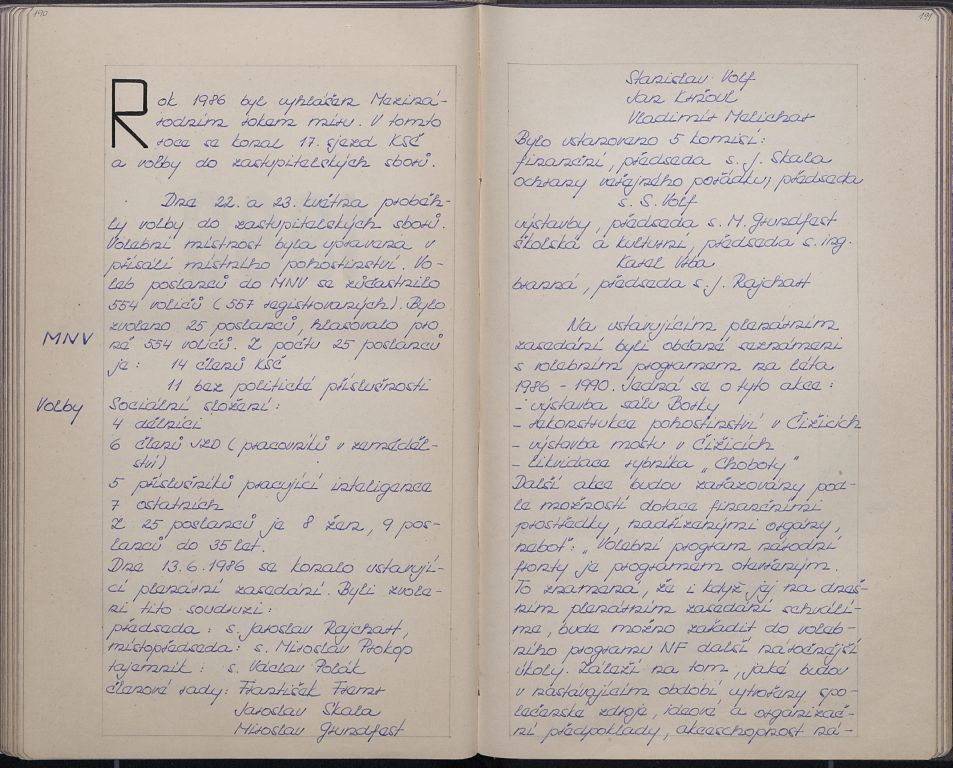 190
Rok 1986 byl vyhlášen Meziná-
rodním rokem míru. V tomto
roce se konal 17. sjezd KSČ
a volby do zastupitelských sborů.
Dne 22. a 23. května proběh-
ly volby do zastupitelských sborů.
Volební místnost byla upravena v
přísálí místního pohostinství. Vo-
leb poslanců do MNV se zúčastnilo
554 voličů (557 registrovaných). Bylo
zvoleno 25 poslanců, hlasovalo pro
MNV
ně 554 voličů. Z počtu 25 poslanců
je: 14 členů KSČ
11 bez politické příslušnosti
Volby
Sociální složení:
4 dělníci
6 členů JZD (pracovníků v zeměděl-
ství)
5 příslušníků pracující inteligence
7 ostatních
Z 25 poslanců je 8 žen, 9 pos-
lanců do 35 let.
Dne 13.6.1986 se konalo ustavují-
cí plenární zasedání. Byli zvole-
ni tito soudruzi:
předseda: s. Jaroslav Rajchart,
místopředseda: s. Miroslav Prokop
tajemník: s. Václav Polák
členové rady: František Franz
Jaroslav Skala
Miroslav Grundfest
191
Stanislav Volf
Jan Kržoul
Vladimír Melichar
Bylo ustanoveno 5 komisí:
finanční, předseda s. J. Skala
ochrany veřejného pořádku, předseda
s. S. Volf
výstavby, předseda s. M. Grundfest
školská a kulturní, předseda s. ing.
Karel Vrba
branná, předseda s. J. Rajchart
Na ustavujícím plenárním
zasedání byli občané seznámeni
s volebním programem na léta
1986 - 1990. Jedná se o tyto akce:
- výstavba sálu Borky
- rekonstrukce pohostinství v Čižicích
- výstavba mostu v Čižicích
- likvidace rybníka „Choboty"
Další akce budou zařazovány pod-
le možností dotace finančními
prostředky, nadřízenými orgány,
neboť: „Volební program národní
fronty je programem otevřeným.
To znamená, že i když jej na dneš-
ním plenárním zasedání schválí-
me, bude možno zařadit do voleb-
ního programu NF další náročnější
úkoly. Záleží na tom, jaké budou
v nastávajícím období vytvořeny spo-
lečenské zdroje, ideové a organizač-
ní předpoklady, akceschopnost ná-